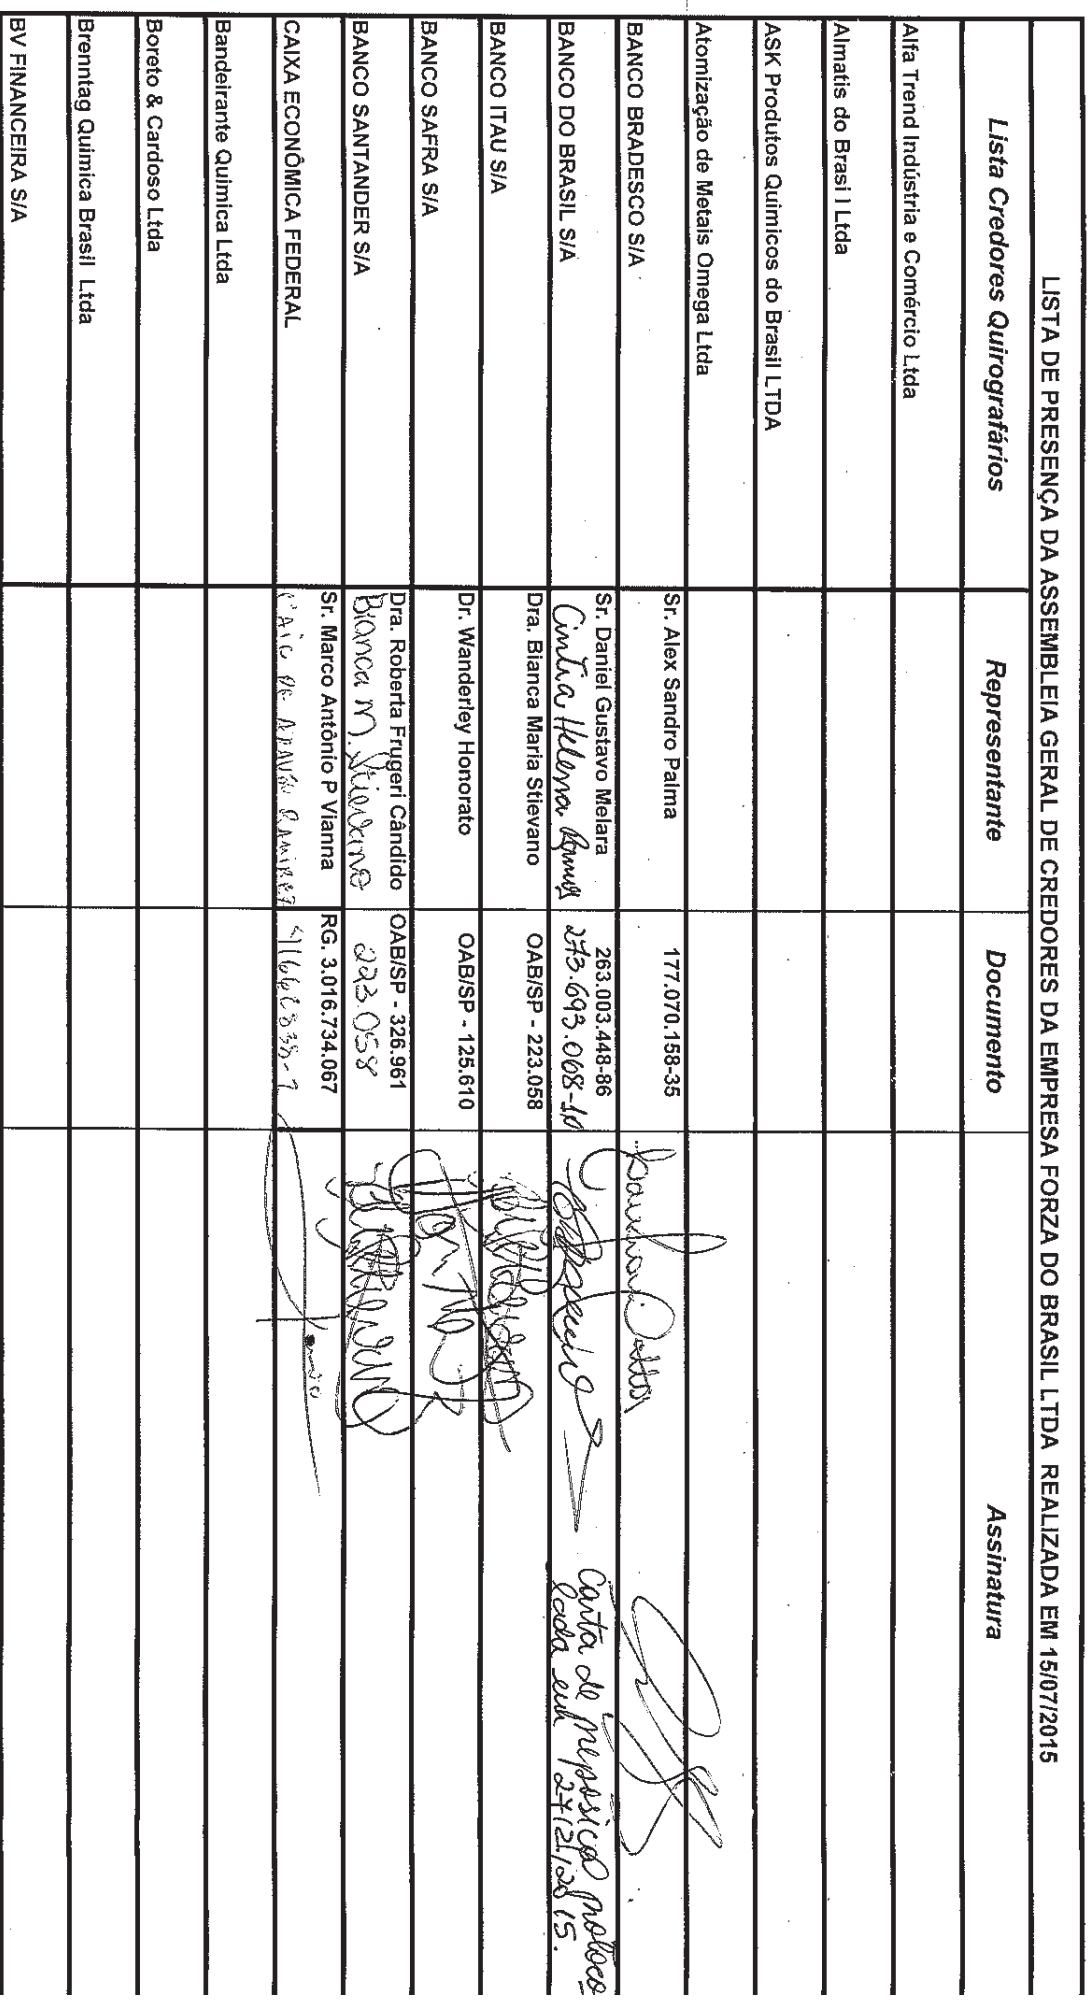 LISTA DE PRESENÇA DA ASSEMBLEIA GERAL DE CREDORES DA EMPRESA FORZA DO BRASIL LTDA REALIZADA EM 15/07/2015
Lista Credores Quirografários Representante Documento Assinatura
Alfa Trend Indústria e Comércio Ltda
Almatis do Brasi l Ltda
ASK Produtos Quimicos do Brasil LTDA
Atomização de Metais Omega Ltda
BANCO BRADESCO S/A Sr. Alex Sandro Palma 177.070.158-35
BANCO DO BRASIL S/A Sr. Daniel Gustavo Melara 263.003.448-86
Cintia Helena 273.693.068-10
Carta de preposição protoco
lada em 27/2/2015.
BANCO ITAU S/A Dra. Bianca Maria Stievano OAB/SP - 223.058
BANCO SAFRA S/A Dr. Wanderley Honorato OAB/SP - 125.610
BANCO SANTANDER S/A Dra. Roberta Frugeri Cândido OAB/SP - 326.961
Bianca M. Stievano 223.058
CAIXA ECONÔMICA FEDERAL Sr. Marco Antônio P Vianna RG. 3.016.734.067
Bandeirante Quimica Ltda
Boreto & Cardoso Ltda
Brenntag Quimica Brasil Ltda
BV FINANCEIRA S/A